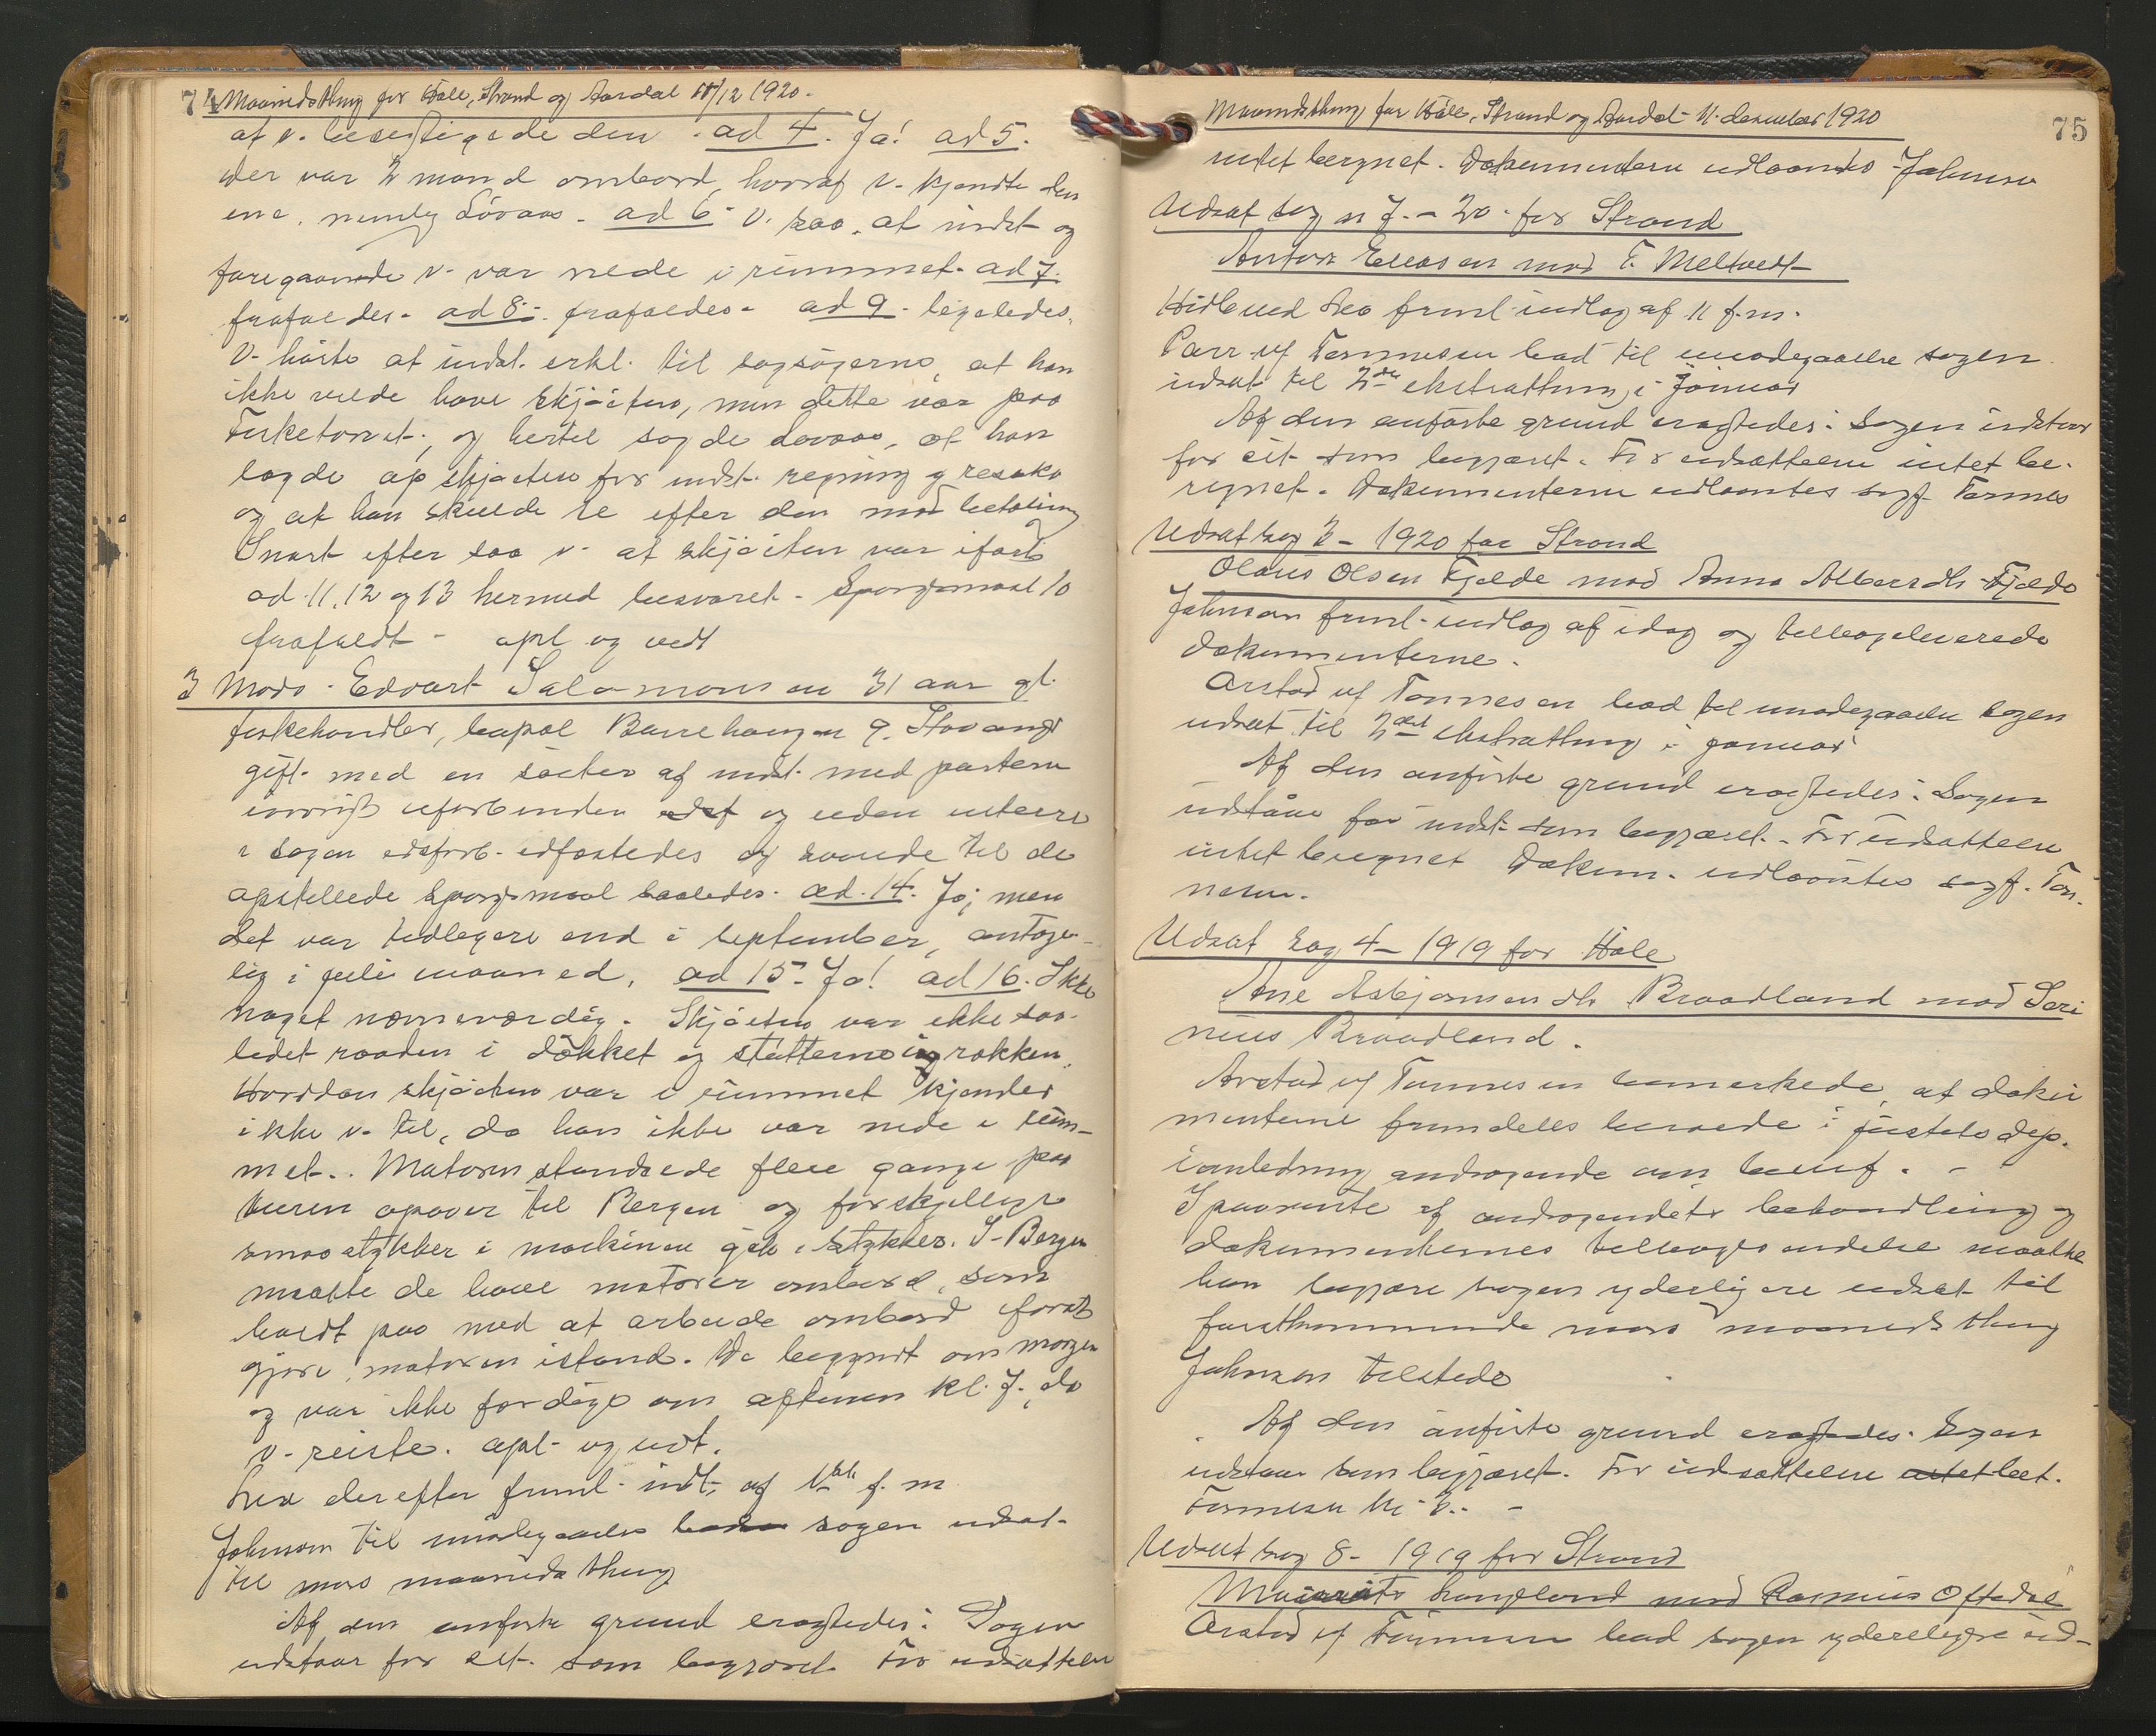 74 Maanedsthing for Hõle, Strand og Aardal 11/12 1920.
at v. besegtigede den. ad 4. Ja! ad 5.
der var 2 mand ombord, hvoraf v. kjendte den
ene, nemlig Lövaas. ad 6. v. saa, at indst. og
foregaaende v. var nede i rummet. ad 7.
frafaldes. ad 8. frafaldes. ad 9. ligeledes.
V. hörte at indst. erkl. til sagsögerne, at han
ikke vilde have skjöiten, men dette var paa
Fisketorvet, og hertil sagde Lövaas, at han
lagde op skjöiten for indst. regning og resiko
og at han skulde se efter den mod betaling
Snart efter saa v. at skjöiten var
ad 11, 12 og 13 hermed besvaret. Spörgsmaal 10
frafaldt. opl. og vedt.
3 Edvart Salomonsen 31 aar gl.
fiskehandler, bopæl Stavanger
gift med en söster af indst. med parterne
iövrigt uforbunden og uden interesse
i sagen edsforb. edfæstedes og svarede til de
opstillede spörgsmaal saaledes. ad. 14. Ja, men
det var tidligere end i september, antage-
lig i juli maaned. ad 15. Ja! ad 16. Ikke
noget nævneværdig. Skjöiten var ikke saa-
ledet raaden i dökket og stötterne og rækken.
Hvordan skjöiten var i rummet kjender
ikke v. til, da han ikke var nede i rum-
met. Motoren standsede flere gange paa
turen opover til Bergen og forskjellige
smaastykker i maskinen gik i stykker. I Bergen
maatte de have ombord, som
holdt paa med at arbeide ombord for at
gjöre motoren istand. De begyndt om morgen
og var ikke færdige om aftenen kl. 7, da
v. reiste. opl. og vedt.
derefter freml. indl. af f. m.
Johnsen til imödegaaelse sagen udsat
til mars maanedsthing
Af den anförte grund eragtedes: Sagen
udstaar for sit. som begjæret. For udsættelsen
Maanedsthing for Hõle, Strand og Aardal 11. desember 1920 75
intet beregnet. Dokumenterne udlaantes Johnsen
Udsat sag n 7. - 20. for Strand
Anton Eliasen mod T. Meltvedt
freml. indlæg af 11 f.m.
Tønnesen bad til imodegaaelse sagen
udsat til 2den ekstrathing i januar
Af den anförte grund eragtedes: Sagen udstaar
for sit som begjæret. For udsættelsen intet be-
regnet. Dokumenterne udlaantes sagf. Tønnes
Udsat sag 2 - 1920 for Strand
Olaus Olsen Fjelde mod Anna Albersdtr. Fjelde
Johnsen freml. indlæg af idag og tilbageleverede
dokumenterne.
Arstad vf Tønnesen bad til imodegaaelse sagen
udsat til 2det ekstrathing i januar
Af den anförte grund eragtedes: Sagen
udstaar for indst. som begjæret. For udsættelsen
intet beregnet Dokum. udlaantes sagf. Tøn-
nesen.
Udsat sag 4 - 1919 for Hõle
Ane Asbjørnsensdtr Braadland mod Seri
nius Braadland.
Arstad vf Tønnesen bemerkede, at doku
menterne fremdeles beroede i justitsdep.
i anledning andragende om benef. -
I paavente af andragendets behandling og
dokumenternes tilbagesendelse maatte
han begjære sagen yderligere udsat til
förstkommende mars maanedsthing
Johnsen tilstede
Af den anförte grund eragtedes: Sagen
udstaar som begjæret. For udsættelsen intet bet.
Tønnesen kr. 2. -
Udsat sag 8 - 1919 for Strand
mod Rasmus Oftedal
Arstad vf Tønnesen bad sagen yderligere ud-